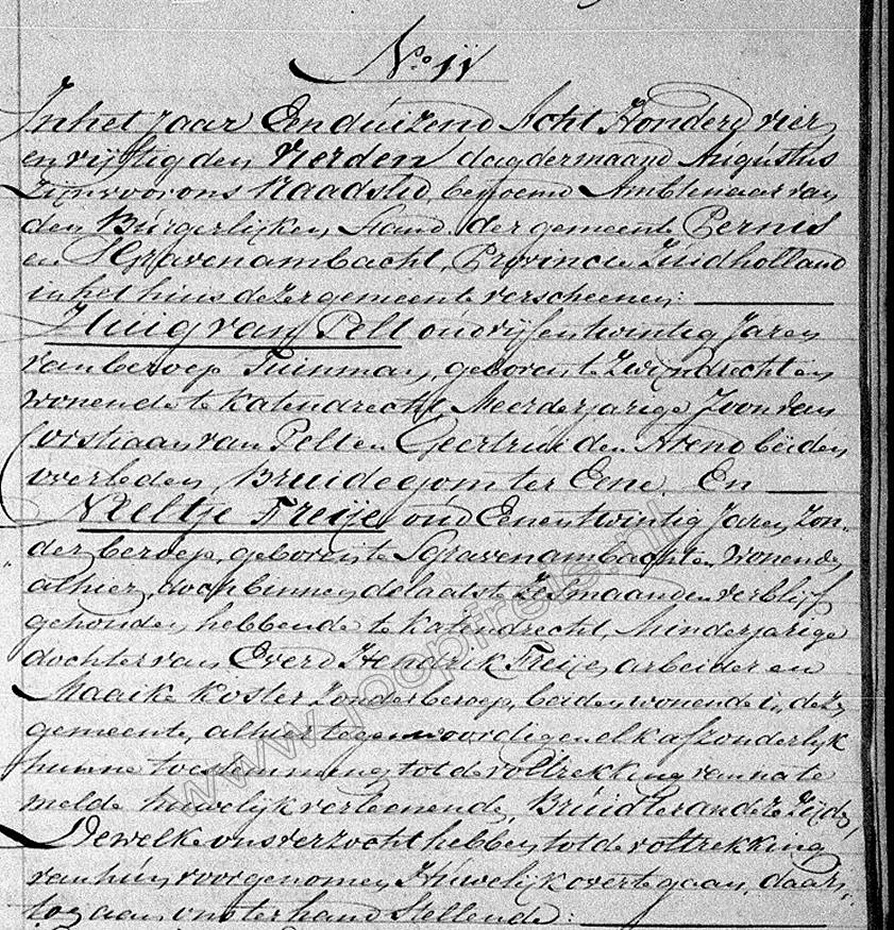 No. 11
In het jaar Een duizend Acht Honderd vier
en vijftig den vierden dag der maand Augustus
zijn voor ons Raadslid, benoemd Ambtenaar van
den Burgerlijken Stand der gemeente Pernis
en S'Gravenambacht, Provincie Zuidholland
in het huis dezer gemeente verscheenen:
Huig van Pelt oud vijf en twintig Jaren
van beroep Tuinman, geboren te Zwijndrecht en
wonende te Katendrecht, Meerderjarige Zoon van
Corstiaan van Pelt en Geertrui den Arend beiden
overleden, Bruidegom ter Eene. En
Neeltje Freije, oud Een en twintig Jaren, zon-
der beroep, geboren te Sgravenambacht en wonende
alhier, doch binnen de laatste zes maanden verblijf
gehouden hebbende te Katendrecht, Minderjarige
dochter van Everd Hendrik Freije, arbeider en
Maaike Koster Zonder beroep, beiden wonende in deze
gemeente, alhier tegenwoordig en elk afzonderlijk
hunne toestemming tot de voltrekking van na te
melde huwelijk verleenende, Bruid ter andere Zijde,
Dewelke ons verzocht hebben tot de voltrekking
van hun voorgenomen Huwelijk over te gaan, daar-
toe aan ons ter hand Stellende:
www.joopfreie.nl